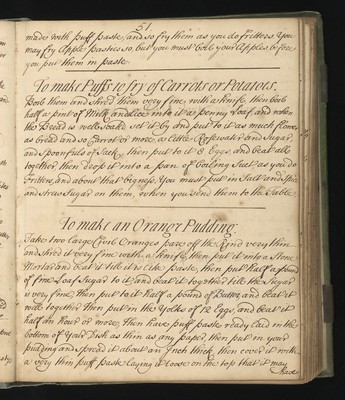 51
made with puff paste, and so fry them as you do fritters. You
may fry Apple pasties so, but you must boil your Apples before
you put them in paste.
To make Puffs to fry of Carrots or Potatoes.
Boyl them and shred them very fine, with a knife, then boyl
half a pint of Milk, and slice into it a penny Loaf, and when
the Bread is well soaked set it by and put to it as much flower
as bread and so Carrot or more, a little Rosewater and Sugar
and Spoonfuls of Sack, then put to it 8 Eggs, and beat all
together then drop it into a pan of boiling Suet as you do
Fritters, and about that bigness, You must put in Salt and Spice
and straw Sugar on them, when you send them to the Table.
To make an Orange Pudding.
Take two Large Civil Oranges pare off the Rind very thin
and shred it very fine with a knife, then put it into a Stone
Mortar and beat it till it is like paste, then put half a pound
of fine Loaf Sugar to it, and beat it together till the Sugar
is very fine, then put to it half a pound of Butter, and beat it
well together then put in the Yolks of 12 Eggs, and beat it
half an Hour or more, then have puff paste ready laid in the
bottom of Your Dish as thin as any paper, then put in your
pudding and spread it about an Inch thick, then cover it with
a very thin puff paste laying it loose on the top that it may
have